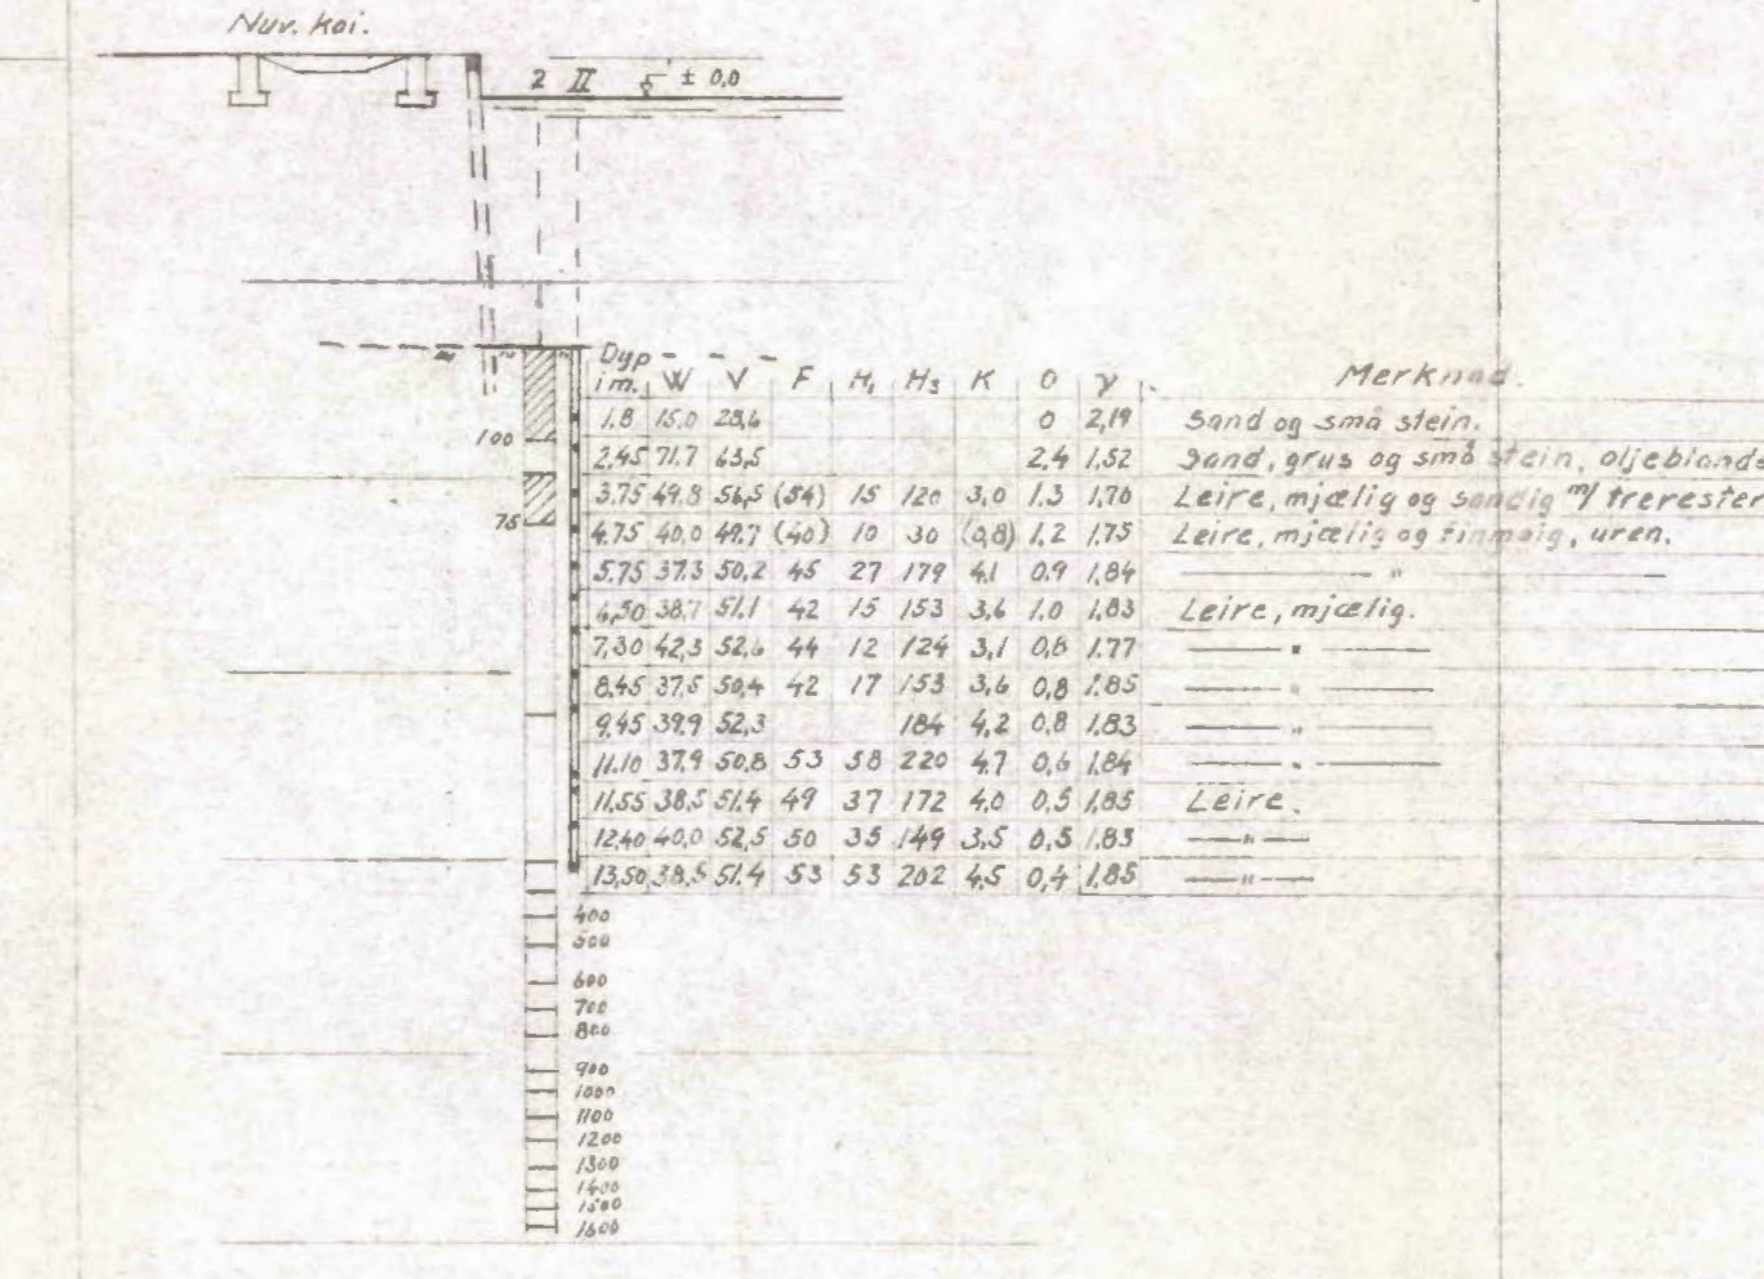 Nuv. kai.
2 II ± 0,0
Dyp
i m. W V F H₁ H₃ K O γ Merknad.
1.8 15.0 28,6 0 2,19 Sand og små stein.
100
2.45 71.7 63,5 2.4 1.52 Sand, grus og små stein, oljeblands
3.75 49.8 56,5 (54) 15 120 3,0 1.3 1,70 Leire, mjælig og sandig m/ trerester
75
4.75 40,0 49.7 (40) 10 30 (0,8) 1,2 1.75 Leire, mjælig og finmoig, uren.
5.75 37.3 50,2 45 27 179 4,1 0.9 1,84 — " —
6,50 38,7 51.1 42 15 153 3,6 1.0 1,83 Leire, mjælig.
7,30 42,3 52,6 44 12 124 3,1 0,8 1.77 — " —
8.45 37,5 50,4 42 17 153 3,6 0,8 1.85 — " —
9.45 39.9 52,3 184 4,2 0,8 1.83 — " —
11.10 37.9 50,8 53 58 220 4.7 0,6 1.84 — " —
11.55 38,5 51.4 49 37 172 4,0 0.5 1,85 Leire.
12,40 40,0 52,5 50 35 149 3.5 0,5 1.83 — " —
13,50 38,5 51.4 53 53 202 4,5 0,4 1,85 — " —
400
500
600
700
800
900
1000
1100
1200
1300
1400
1500
1600